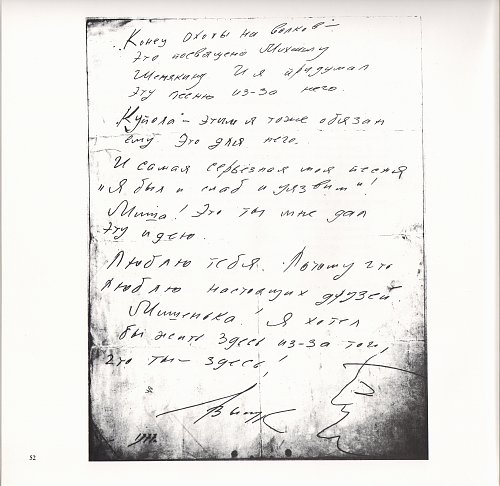 Конец охоты на волков -
это посвящено Михаилу
Шемякину И я придумал
эту песню из-за него.
Купола - этим я тоже обязан
ему. Это для него.
И самая серьезная моя песня
"Я был и слаб и уязвим"!
Миша! Это ты мне дал
эту идею.
Люблю тебя. Потому что
люблю настоящих друзей
Мишенька! Я хотел
бы жить здесь из-за того,
что ты - здесь!
52